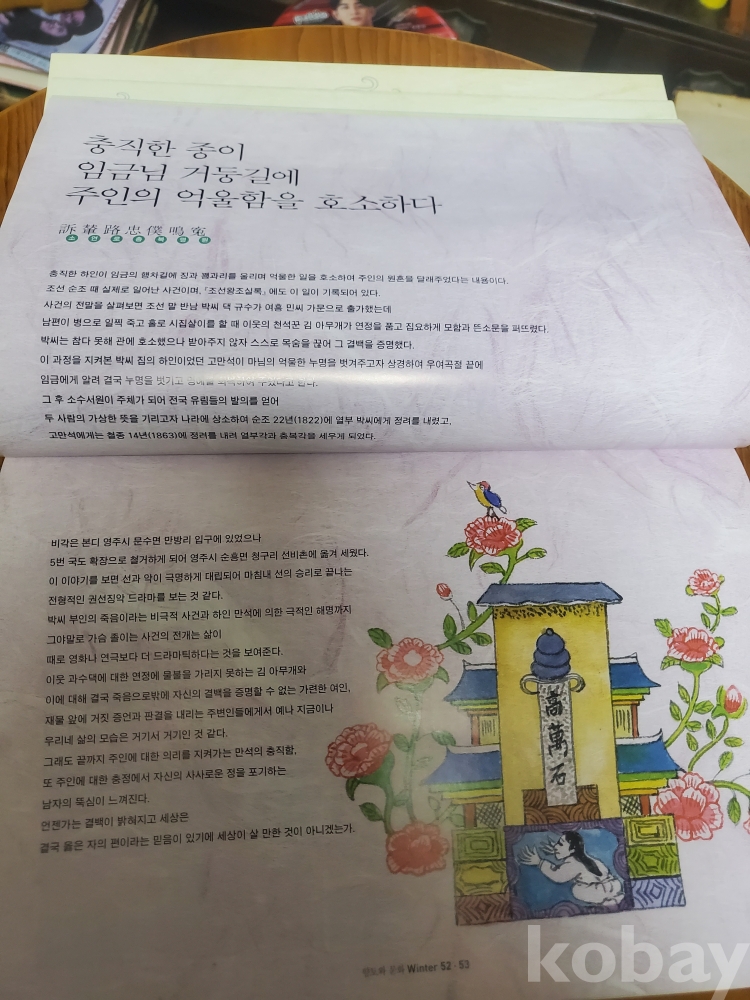 충직한 종이
임금님 거둥길에
주인의 억울함을 호소하다
訴輦路忠僕鳴寃
소연로충복명원
충직한 하인이 임금의 행차길에 징과 꽹과리를 울리며 억울한 일을 호소하여 주인의 원혼을 달래주었다는 내용이다.
조선 순조 때 실제로 일어난 사건이며, 「조선왕조실록」에도 이 일이 기록되어 있다.
사건의 전말을 살펴보면 조선 말 반남 박씨 댁 규수가 여흥 민씨 가문으로 출가했는데
남편이 병으로 일찍 죽고 홀로 시집살이를 할 때 이웃의 천석꾼 김 아무개가 연정을 품고 집요하게 모함과 뜬소문을 퍼뜨렸다.
박씨는 참다 못해 관에 호소했으나 받아주지 않자 스스로 목숨을 끊어 그 결백을 증명했다.
이 과정을 지켜본 박씨 집의 하인이었던 고만석이 마님의 억울한 누명을 벗겨주고자 상경하여 우여곡절 끝에
임금에게 알려 결국 누명을 벗기고
그 후 소수서원이 주체가 되어 전국 유림들의 발의를 얻어
두 사람의 가상한 뜻을 기리고자 나라에 상소하여 순조 22년(1822)에 열부 박씨에게 정려를 내렸고,
고만석에게는 철종 14년(1863)에 정려를 내려 열부각과 충복각을 세우게 되었다.
비각은 본디 영주시 문수면 만방리 입구에 있었으나
5번 국도 확장으로 철거하게 되어 영주시 순흥면 청구리 선비촌에 옮겨 세웠다.
이 이야기를 보면 선과 악이 극명하게 대립되어 마침내 선의 승리로 끝나는
전형적인 권선징악 드라마를 보는 것 같다.
박씨 부인의 죽음이라는 비극적 사건과 하인 만석에 의한 극적인 해명까지
그야말로 가슴 졸이는 사건의 전개는 삶이
때로 영화나 연극보다 더 드라마틱하다는 것을 보여준다.
이웃 과수댁에 대한 연정에 물불을 가리지 못하는 김 아무개와
이에 대해 결국 죽음으로밖에 자신의 결백을 증명할 수 없는 가련한 여인,
재물 앞에 거짓 증언과 판결을 내리는 주변인들에게서 예나 지금이나
우리네 삶의 모습은 거기서 거기인 것 같다.
그래도 끝까지 주인에 대한 의리를 지켜가는 만석의 충직함,
또 주인에 대한 충정에서 자신의 사사로운 정을 포기하는
남자의 뚝심이 느껴진다.
언젠가는 결백이 밝혀지고 세상은
결국 옳은 자의 편이라는 믿음이 있기에 세상이 살 만한 것이 아니겠는가.
高萬石
향토와 문화 Winter 52·53
kobay